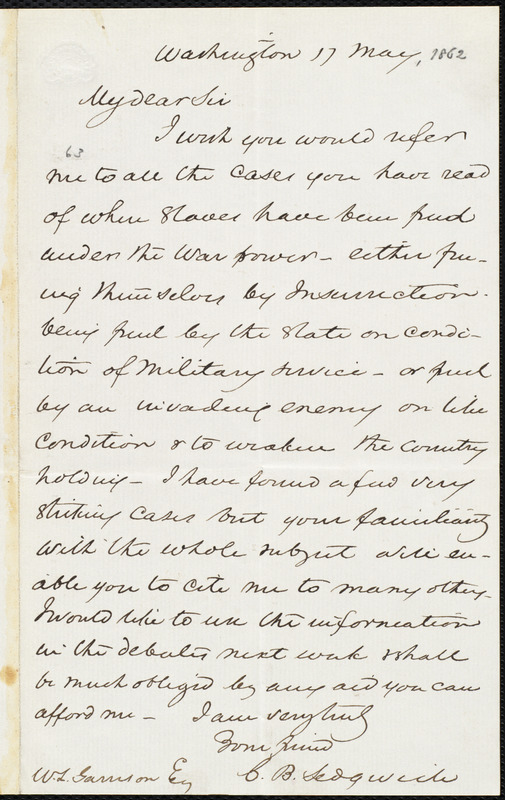 Washington 17 May, 1862
My dear Sir
I wish you would refer
63
me to all the cases you have read
of when slaves have been freed
under the War power - either free-
ing themselves by Insurrection -
being freed by the State on condi-
tion of Military service - or freed
by an invading enemy on like
condition & to weaken the country
holding - I have found a few very
striking cases but your familiarity
with the whole subject will en-
able you to cite me to many others.
I would like to use the information
in the debates next week & shall
be much obliged by any aid you can
afford me - I am very truly
Your friend
W L Garrison Esq C. B. Sedgwick